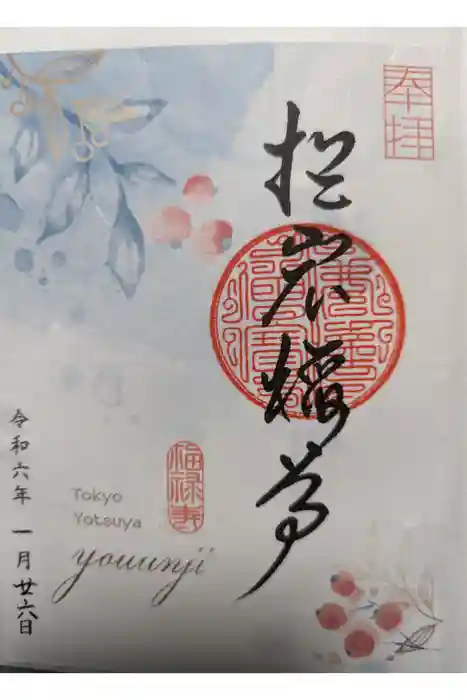 奉拝
於岩稲荷
福禄寿
Tokyo
Yotsuya
youunji
令和六年 一月廿六日